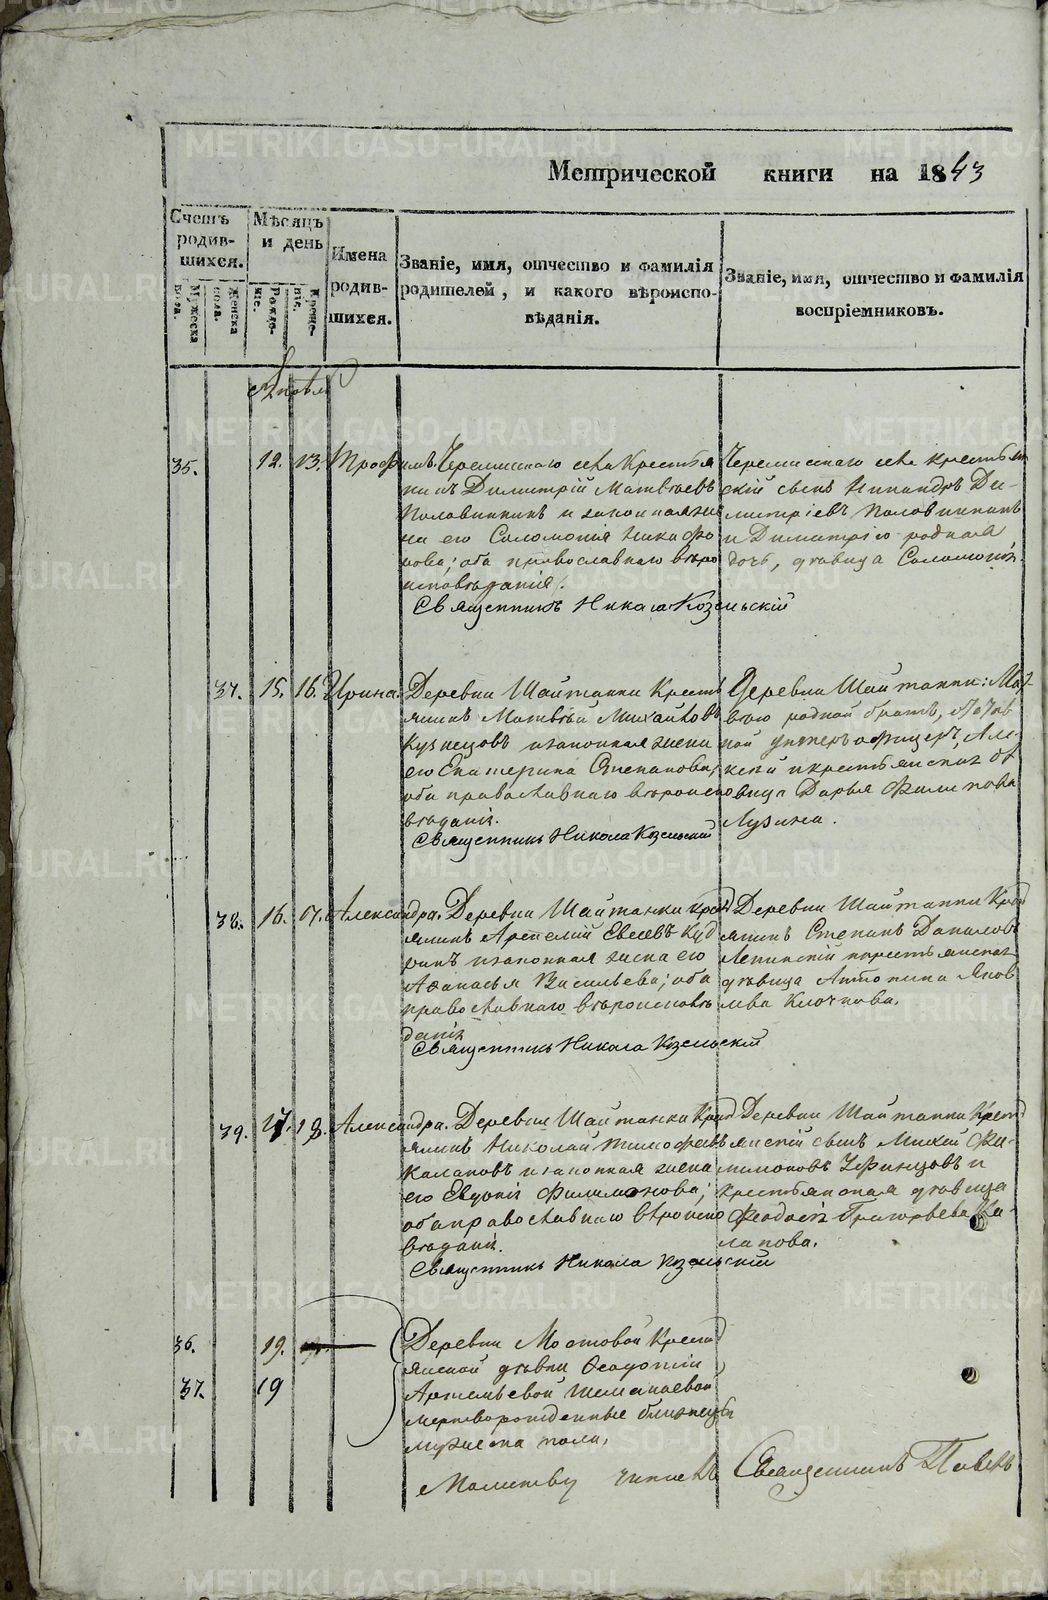 Метрической книги на 1843
Счетъ родившихся.
Мужеска пола.
Женска пола.
Мѣсяцъ и день
Рожденіе.
Крещеніе.
Имена родившихся.
Званіе, имя, отчество и фамилія родителей, и какого вѣроисповѣданія.
Званіе, имя, отчество и фамилія воспріемниковъ.
Апрѣль
35. 12. 13. Трофимъ.
Черемисскаго села Крестья
нинъ Димитрій Матвѣевъ
Половинкинъ и законная же
на его Соломонія Никифо
рова; оба православнаго вѣро
исповѣданія.
Священникъ Никола Козельскій
Черемисскаго села крестьян
скій сынъ Никандръ Ди-
митріевъ Половинкинъ
и Димитрію родная
дочь, дѣвица Соломонія.
37. 15. 16. Ирина.
Деревни Шайтанки Кресть
янинъ Матвѣй Михайловъ
Кузнецовъ и законная жена
его Екатерина Степанова;
оба православнаго вѣроиспо
вѣданія.
Священникъ Никола Козельскій
Деревни Шайтанки: Мат-
вѣю родной братъ,
унтеръ офицеръ, Але-
ксѣй и крестьянская дѣ
вица Дарья Филипова
Лузина.
38. 16. 17. Александра.
Деревни Шайтанки крест
янинъ Арсеній Евсеевъ Куд
ринъ и законная жена его
Афанасья Васильева; оба
православнаго вѣроисповѣ
данія
Священникъ Никола Козельскій
Деревни Шайтанки Крест
янинъ Степанъ Даниловъ
Лепинскій и крестьянская
дѣвица Антонина Яков
лева Клочкова.
39. 17. 18. Александра.
Деревни Шайтанки Крест
янинъ Николай Тимофеевъ
Калаповъ и законная жена
его Евдокія Филимонова;
оба православнаго вѣроиспо
вѣданія.
Священникъ Никола Козельскій
Деревни Шайтанки Крест
янскій сынъ Михей Фи-
лимоновъ Уфинцовъ и
крестьянская дѣвица
Феодосія Григорьева Ка-
лапова.
36. 19.
37. 19
Деревни Мостовой Крест
янской дѣвки Феодотіи
Артемьевой Шеманаевой
мертворожденные близнецы
мужеска пола.
Молитву читалъ Священникъ Павелъ
METRIKI.GASO-URAL.RU